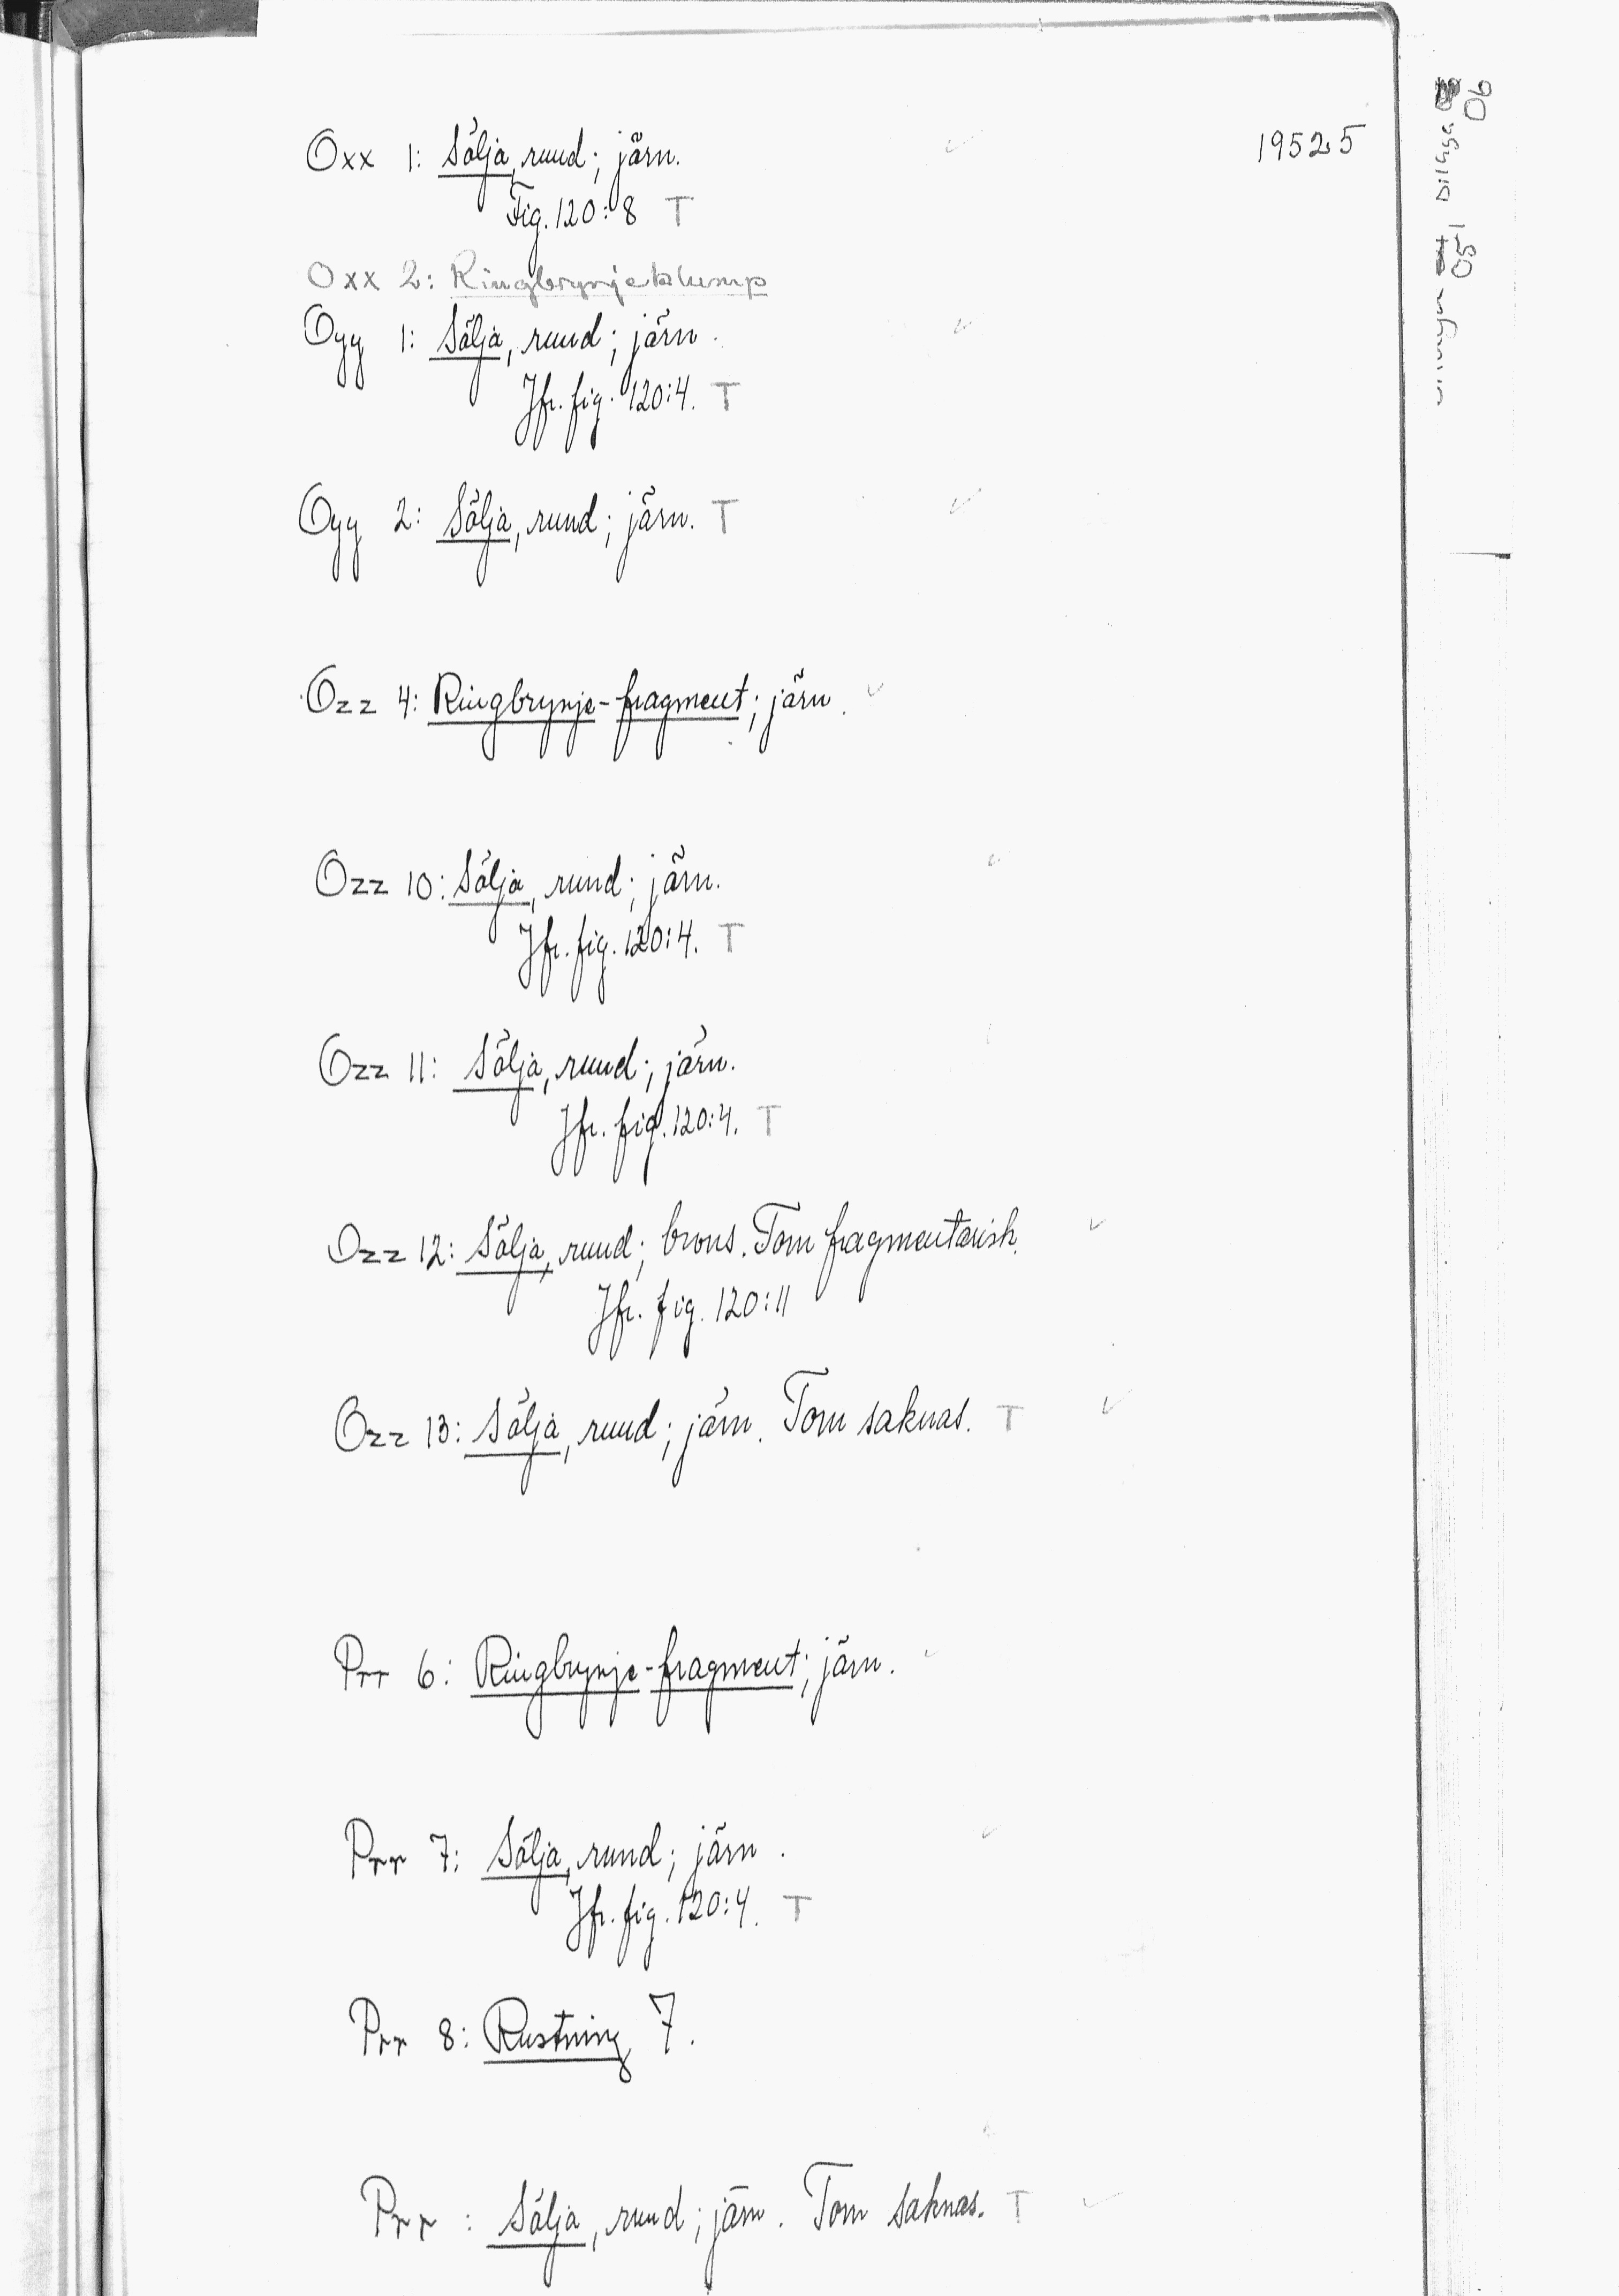 19525
Oxx 1: Sölja, rund; järn. ✓
Fig. 120:8 T
Oxx 2: Ringbrynjeklump
Oyy 1: Sölja, rund; järn. ✓
Jfr. fig. 120:4. T
Oyy 2: Sölja, rund; järn. T ✓
Ozz 4: Ringbrynje-fragment; järn. ✓
Ozz 10: Sölja, rund; järn. ✓
Jfr. fig. 120:4. T
Ozz 11: Sölja, rund; järn.
Jfr. fig. 120:4. T
Ozz 12: Sölja, rund; brons. Torn fragmentarisk. ✓
Jfr. fig. 120:11
Ozz 13: Sölja, rund; järn. Torn saknas. T ✓
Prr 6: Ringbrynje-fragment; järn. ✓
Prr 7: Sölja, rund; järn. ✓
Jfr. fig. 120:4. T
Prr 8: Rustning 7.
Prr : Sölja, rund; järn. Torn saknas. T ✓
05-1 bilaga
06